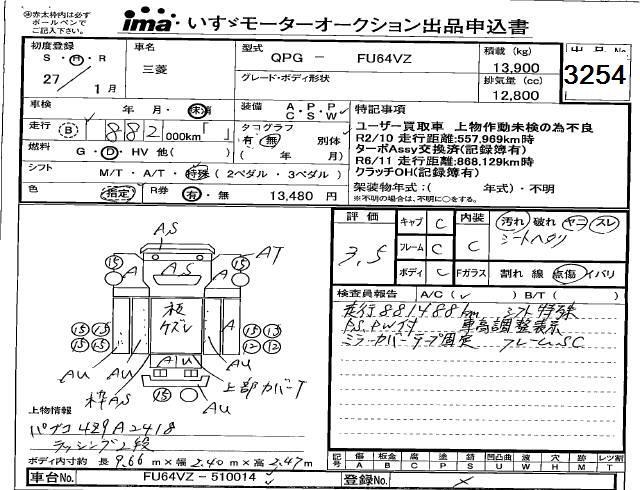 ㊟赤太枠内は必ず
ボールペンで
ご記入下さい。
ima いすゞモーターオークション出品申込書
初度登録
S・H・R
27/1月
車名
三菱
型式
QPG - FU64VZ
グレード・ボディ形状
積載 (kg)
13,900
排気量 (cc)
12,800
出品No.
3254
車検
年・月・抹消
装備
A・P・P
C・S・W
走行
B
882000km
タコグラフ
有・無 別体
( 年 月)
燃料
G・D・HV 他( )
シフト
M/T・A/T・特殊 (2ペダル・3ペダル)
色
指定
R券
有・無 13,480 円
特記事項
ユーザー買取車 上物作動未検の為不良
R2/10 走行距離:557,969km時
ターボAssy交換済(記録簿有)
R6/11 走行距離:868,129km時
クラッチOH(記録簿有)
架装物年式:( 年式)・不明
※不明の場合は、不明に○をする。
評価
3.5
キャブ C
フレーム C
ボディ C
内装
C
Fガラス
汚れ 破れ ヤニ スレ
シートヘタリ
割れ 線 点傷 イバリ
検査員報告 A/C(✓) B/T( )
走行881488km シフト特殊
P.S.P.W付 車高調整表示
ミラーカバーテープ固定 フレームS.C
A,S
AT
15
A
A,S
A
15
板
ケズレ
A
15 15
15 15
15 15
12 12
AU
AU
AU
枠A,S
15
AU
上部カバーT
上物情報
パブコ 429A2418
ラッシング2段
ボディ内寸約 長 9.66 m×幅 2.40 m×高 2.47m
車台No. FU64VZ-510014
記号
傷 A
板金 B
腐 C
塗 P
錆 S
凹凸曲 U
波 W
穴 H
跡 M
レツ割 T
登録No.